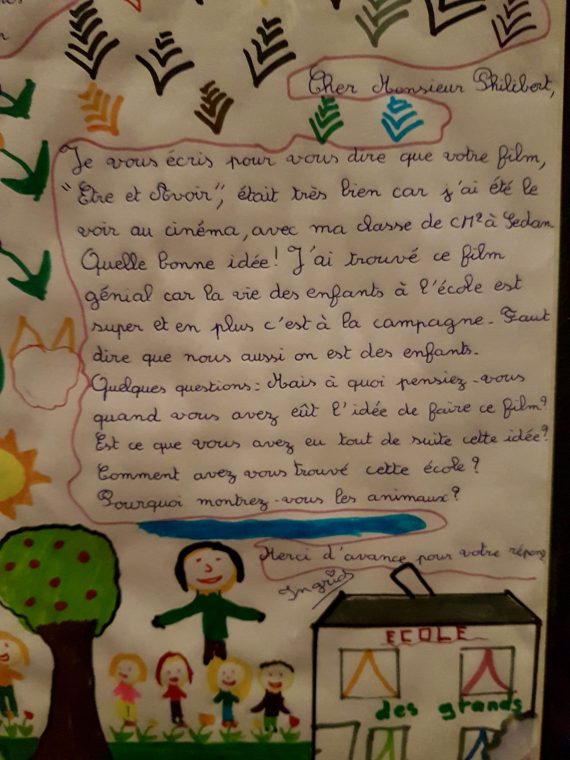 Cher Monsieur Philibert,
Je vous écris pour vous dire que votre film,
"Etre et Avoir", était très bien car j'ai été le
voir au cinéma, avec ma classe de CM2 à Sedan.
Quelle bonne idée! J'ai trouvé ce film
génial car la vie des enfants à l'école est
super et en plus c'est à la campagne. Faut
dire que nous aussi on est des enfants.
Quelques questions: Mais à quoi pensiez-vous
quand vous avez eût l'idée de faire ce film?
Est ce que vous avez eu tout de suite cette idée?
Comment avez vous trouvé cette école?
Pourquoi montrez-vous les animaux?
Merci d'avance pour votre réponse
Ingrid
ECOLE
des grands